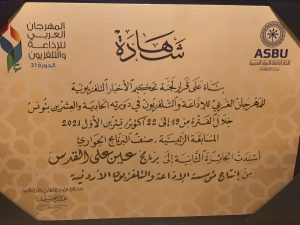 المهرجان
العربي
للإذاعة
والتلفزيون
الدورة 21
شهادة
ASBU
بناء على قرار لجنة تحكيم الأخبار التلفزيونية
للمهرجان العربي للإذاعة والتلفزيون في دورته الحادية والعشرين بتونس
خلال الفترة من 19 إلى 22 أكتوبر تشرين الأول 2021
المسابقة الرئيسية . صنف البرنامج الحواري
أسندت الجائزة الثانية إلى برنامج عين على القدس
من إنتاج مؤسسة الإذاعة والتلفزيون الأردنية